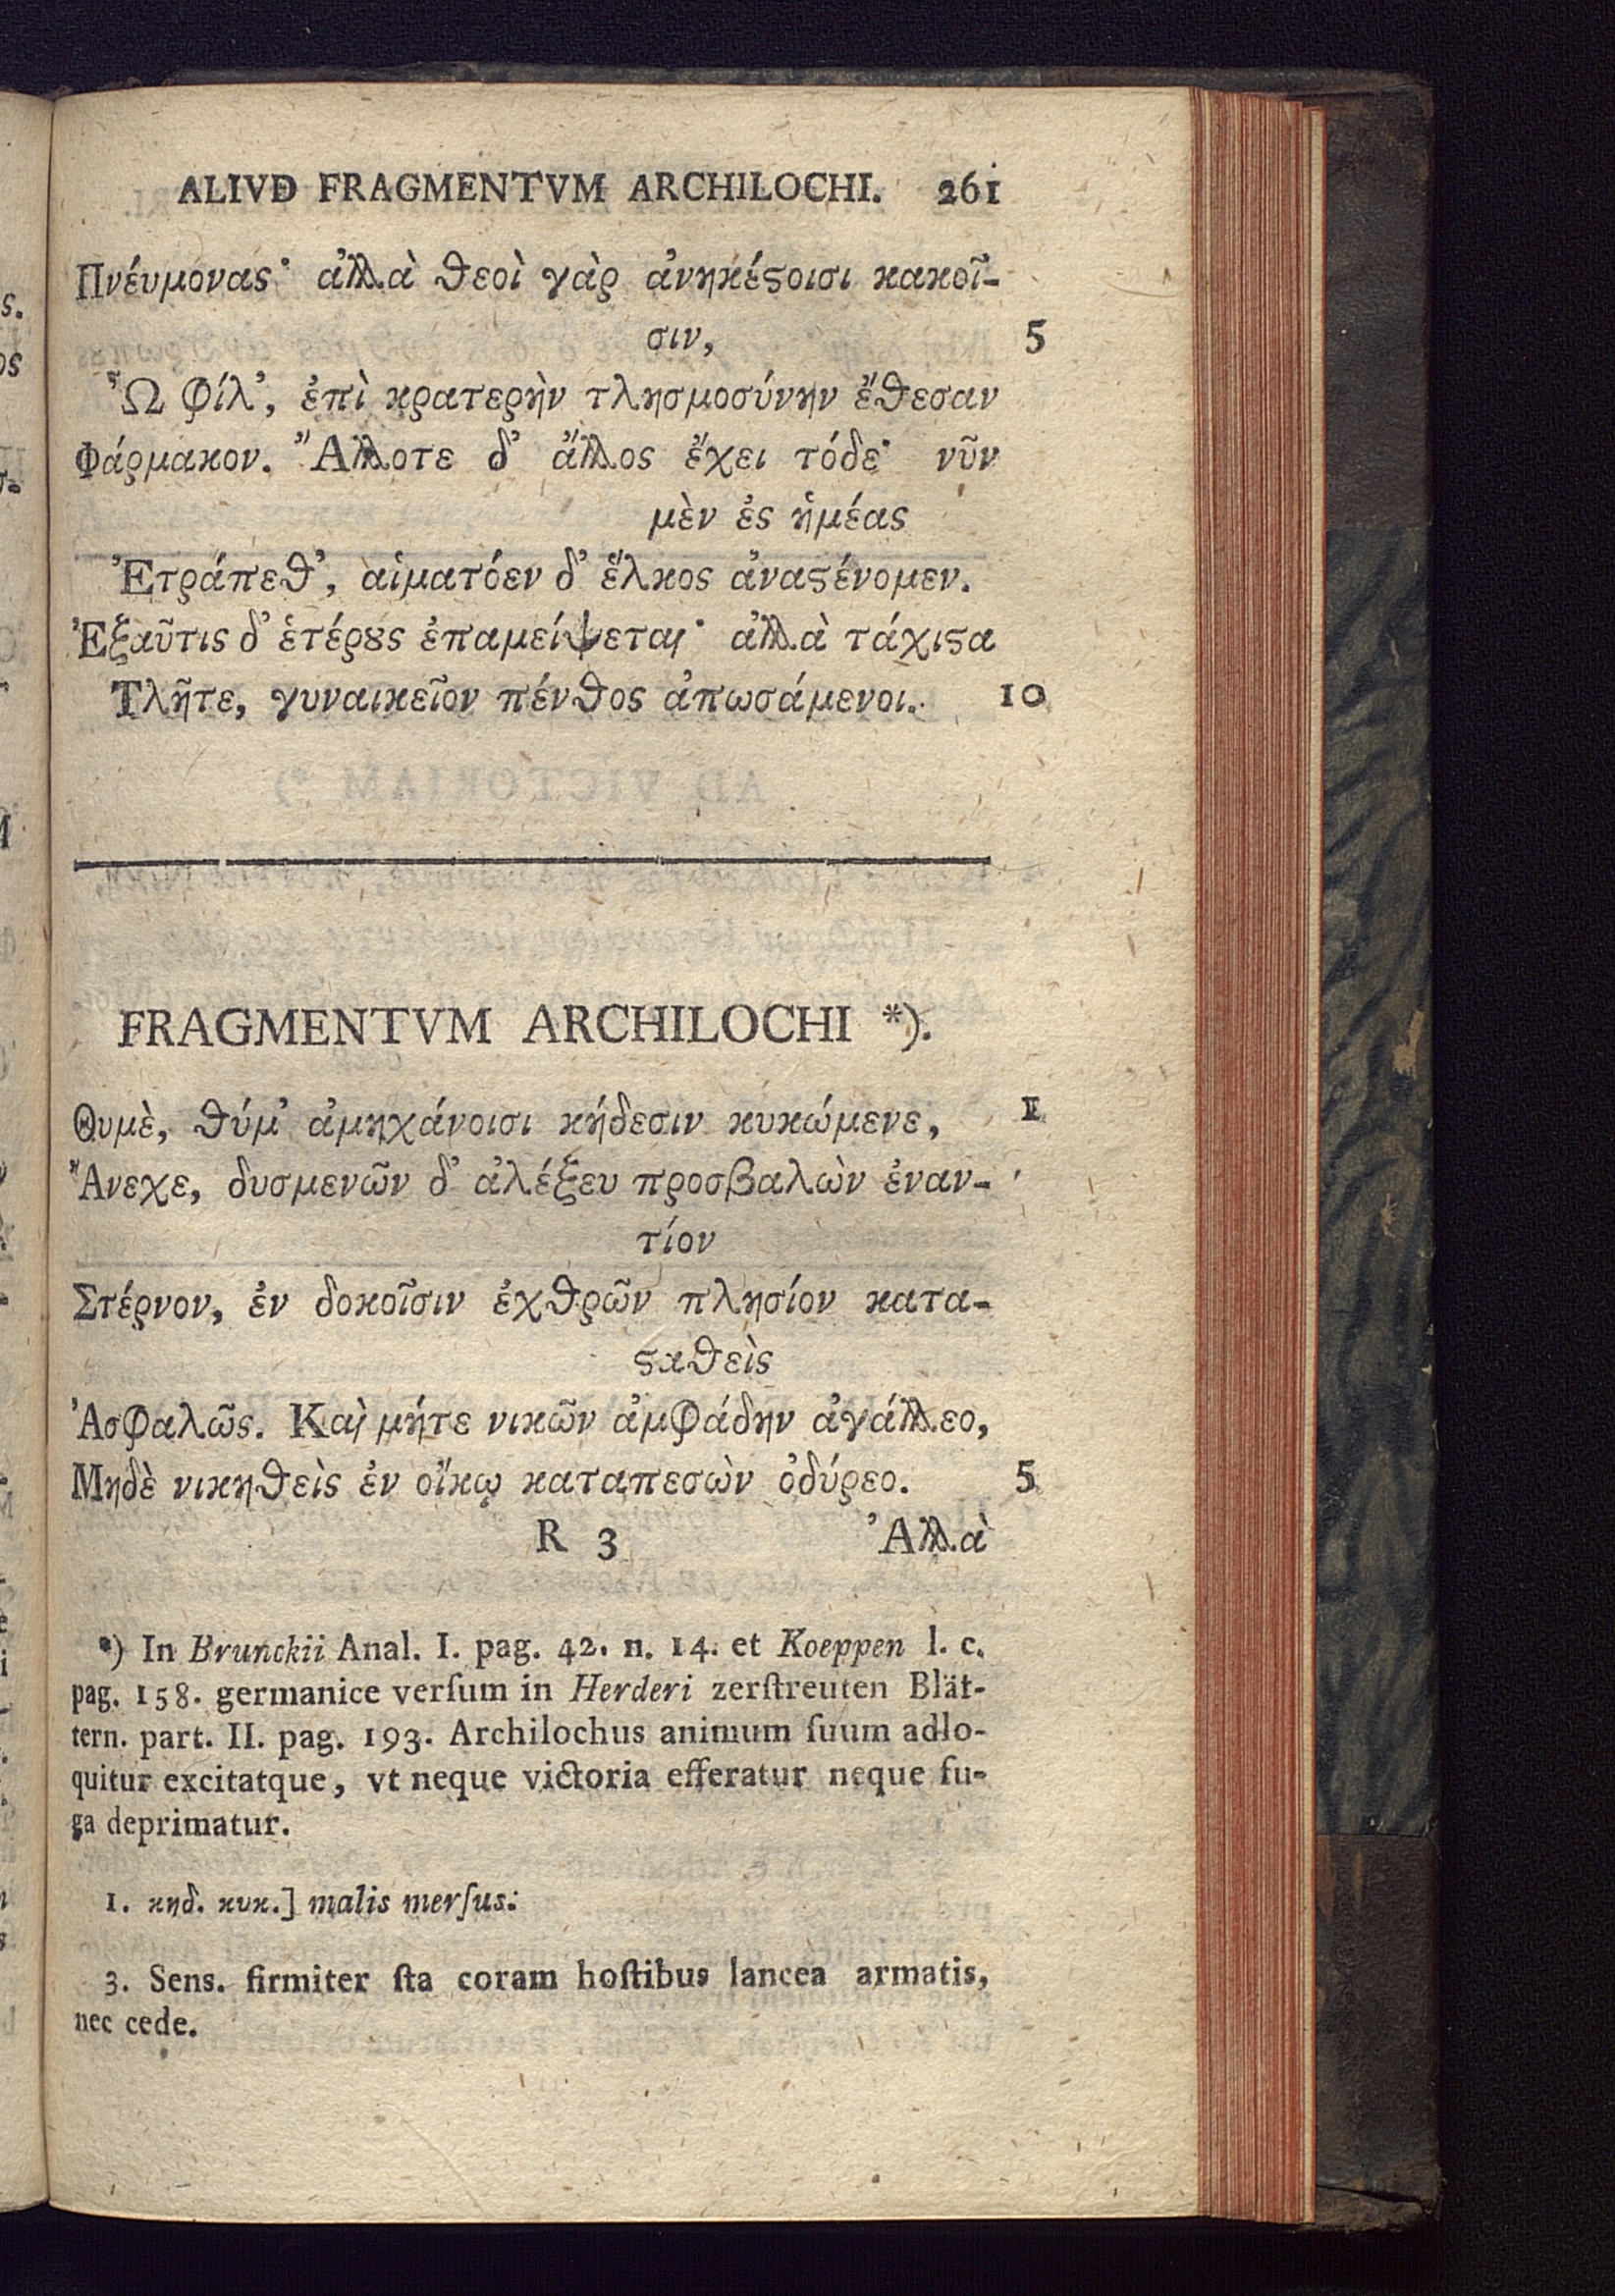 ALIVD FRAGMENTVM ARCHILOCHI. 261
Πνέυμονας· ἀλλὰ θεοὶ γὰρ ἀνηκέϛοισι κακοῖ-
σιν, 5
Ὦ φίλ', ἐπὶ κρατερὴν τλησμοσύνην ἔθεσαν
Φάρμακον. Ἄλλοτε δ' ἄλλος ἔχει τόδε· νῦν
μὲν ἐς ἡμέας
Ἐτράπεθ', αἱματόεν δ' ἕλκος ἀναϛένομεν.
Ἐξαῦτις δ' ἑτέρȣς ἐπαμείψεται· ἀλλὰ τάχιϛα
Τλῆτε, γυναικεῖον πένθος ἀπωσάμενοι. 10
FRAGMENTVM ARCHILOCHI *).
Θυμὲ, θύμ' ἀμηχάνοισι κήδεσιν κυκώμενε, 1
Ἄνεχε, δυσμενῶν δ' ἀλέξευ προσβαλὼν ἐναν-
τίον
Στέρνον, ἐν δοκοῖσιν ἐχθρῶν πλησίον κατα-
ϛαθεὶς
Ἀσφαλῶς. Καὶ μήτε νικῶν ἀμφάδην ἀγάλλεο,
Μηδὲ νικηθεὶς ἐν οἴκῳ καταπεσὼν ὀδύρεο. 5
R 3 Ἀλλὰ
*) In Brunckii Anal. I. pag. 42. n. 14. et Koeppen l. c.
pag. 158. germanice verſum in Herderi zerſtreuten Blät-
tern. part. II. pag. 193. Archilochus animum ſuum adlo-
quitur excitatque, vt neque victoria efferatur neque fu-
ga deprimatur.
1. κηδ. κυκ.] malis merſus.
3. Sens. firmiter ſta coram hoſtibus lancea armatis,
nec cede.